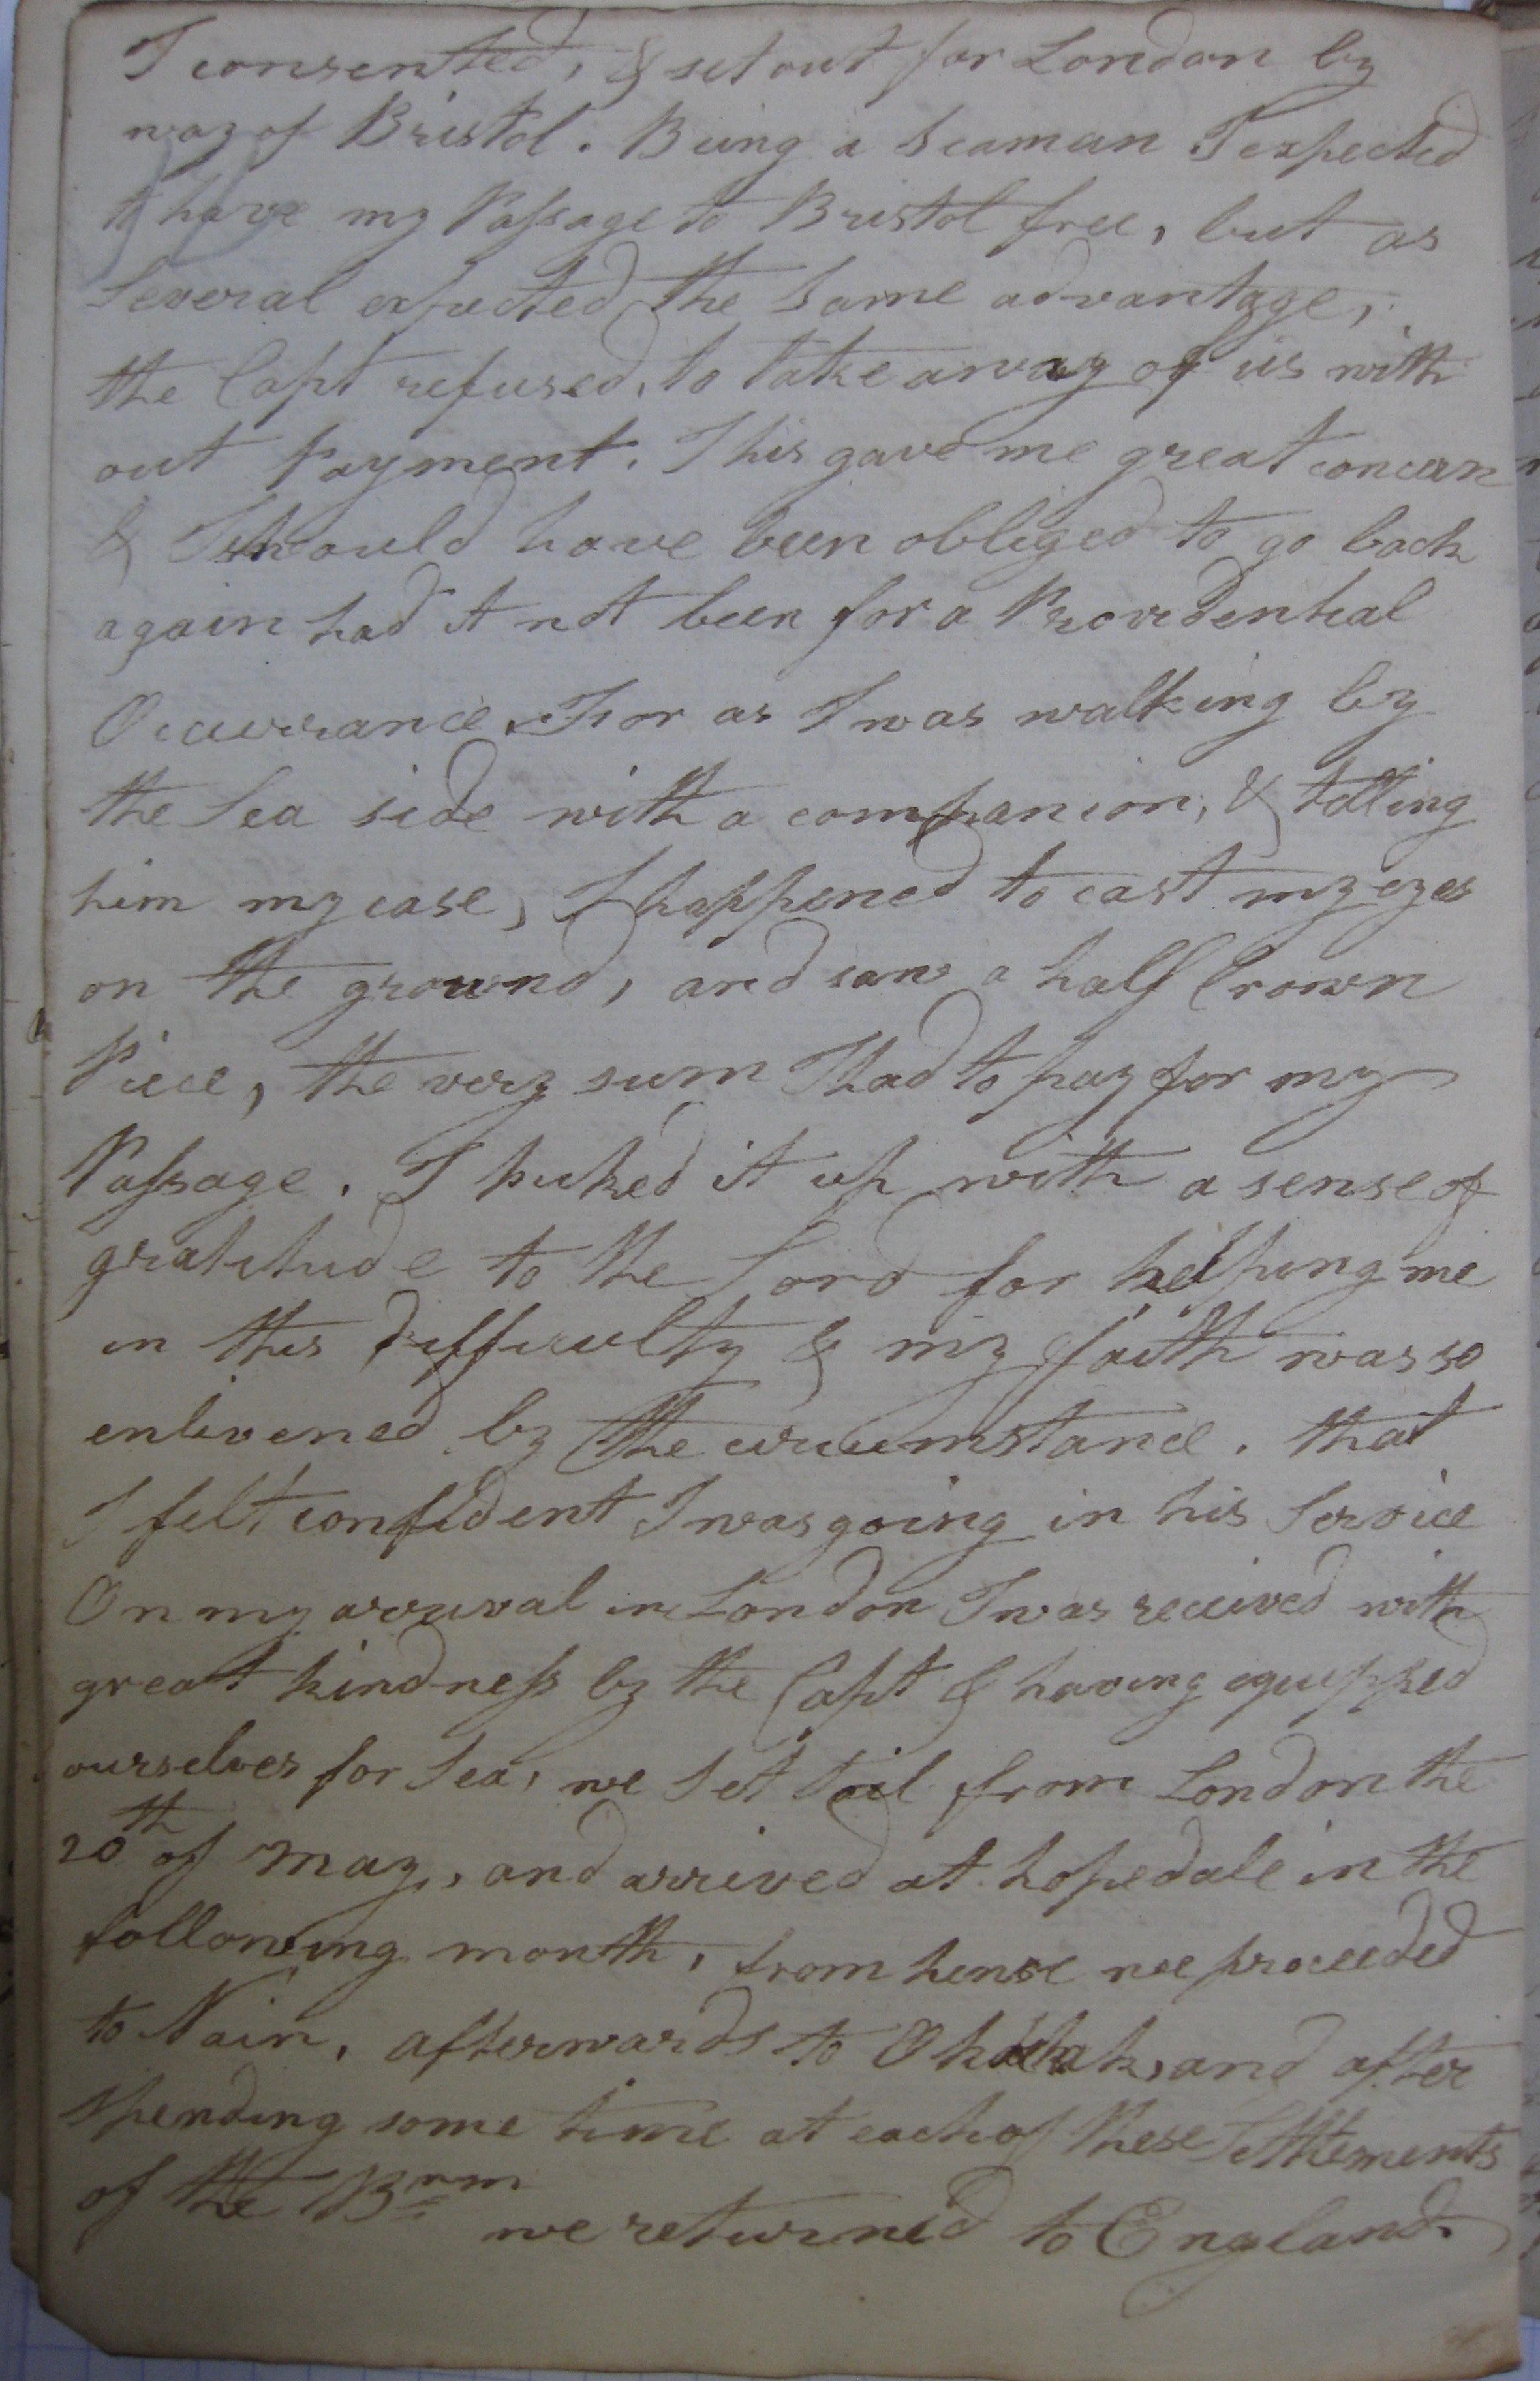 I consented, & set out for London by
way of Bristol. Being a Seaman I expected
to have my Passage to Bristol free, but as
Several expected the Same advantage,
the Capt refused, to take away of us with
out Payment. This gave me great concern
& I should have been obliged to go back
again had it not been for a Providential
Occurrance. For as I was walking by
the Sea side with a companion, & telling
him my case, I happened to cast my eyes
on the ground, and saw a half Crown
Piece, the very sum I had to pay for my
Passage. I picked it up with a sense of
gratitude to the Lord for helping me
in this Difficulty & my faith was so
enlivened by the circumstance. that
I felt confident I was going in his Service
On my arrival in London I was received with
great kindness by the Capt & having equipped
ourselves for Sea, we Set Sail from London the
20th of May, and arrived at hopedale in the
following month, from hense we proceeded
to Nain, afterwards to Okkak, and after
Spending some time at each of these Settlements
of the Brn we returned to England.